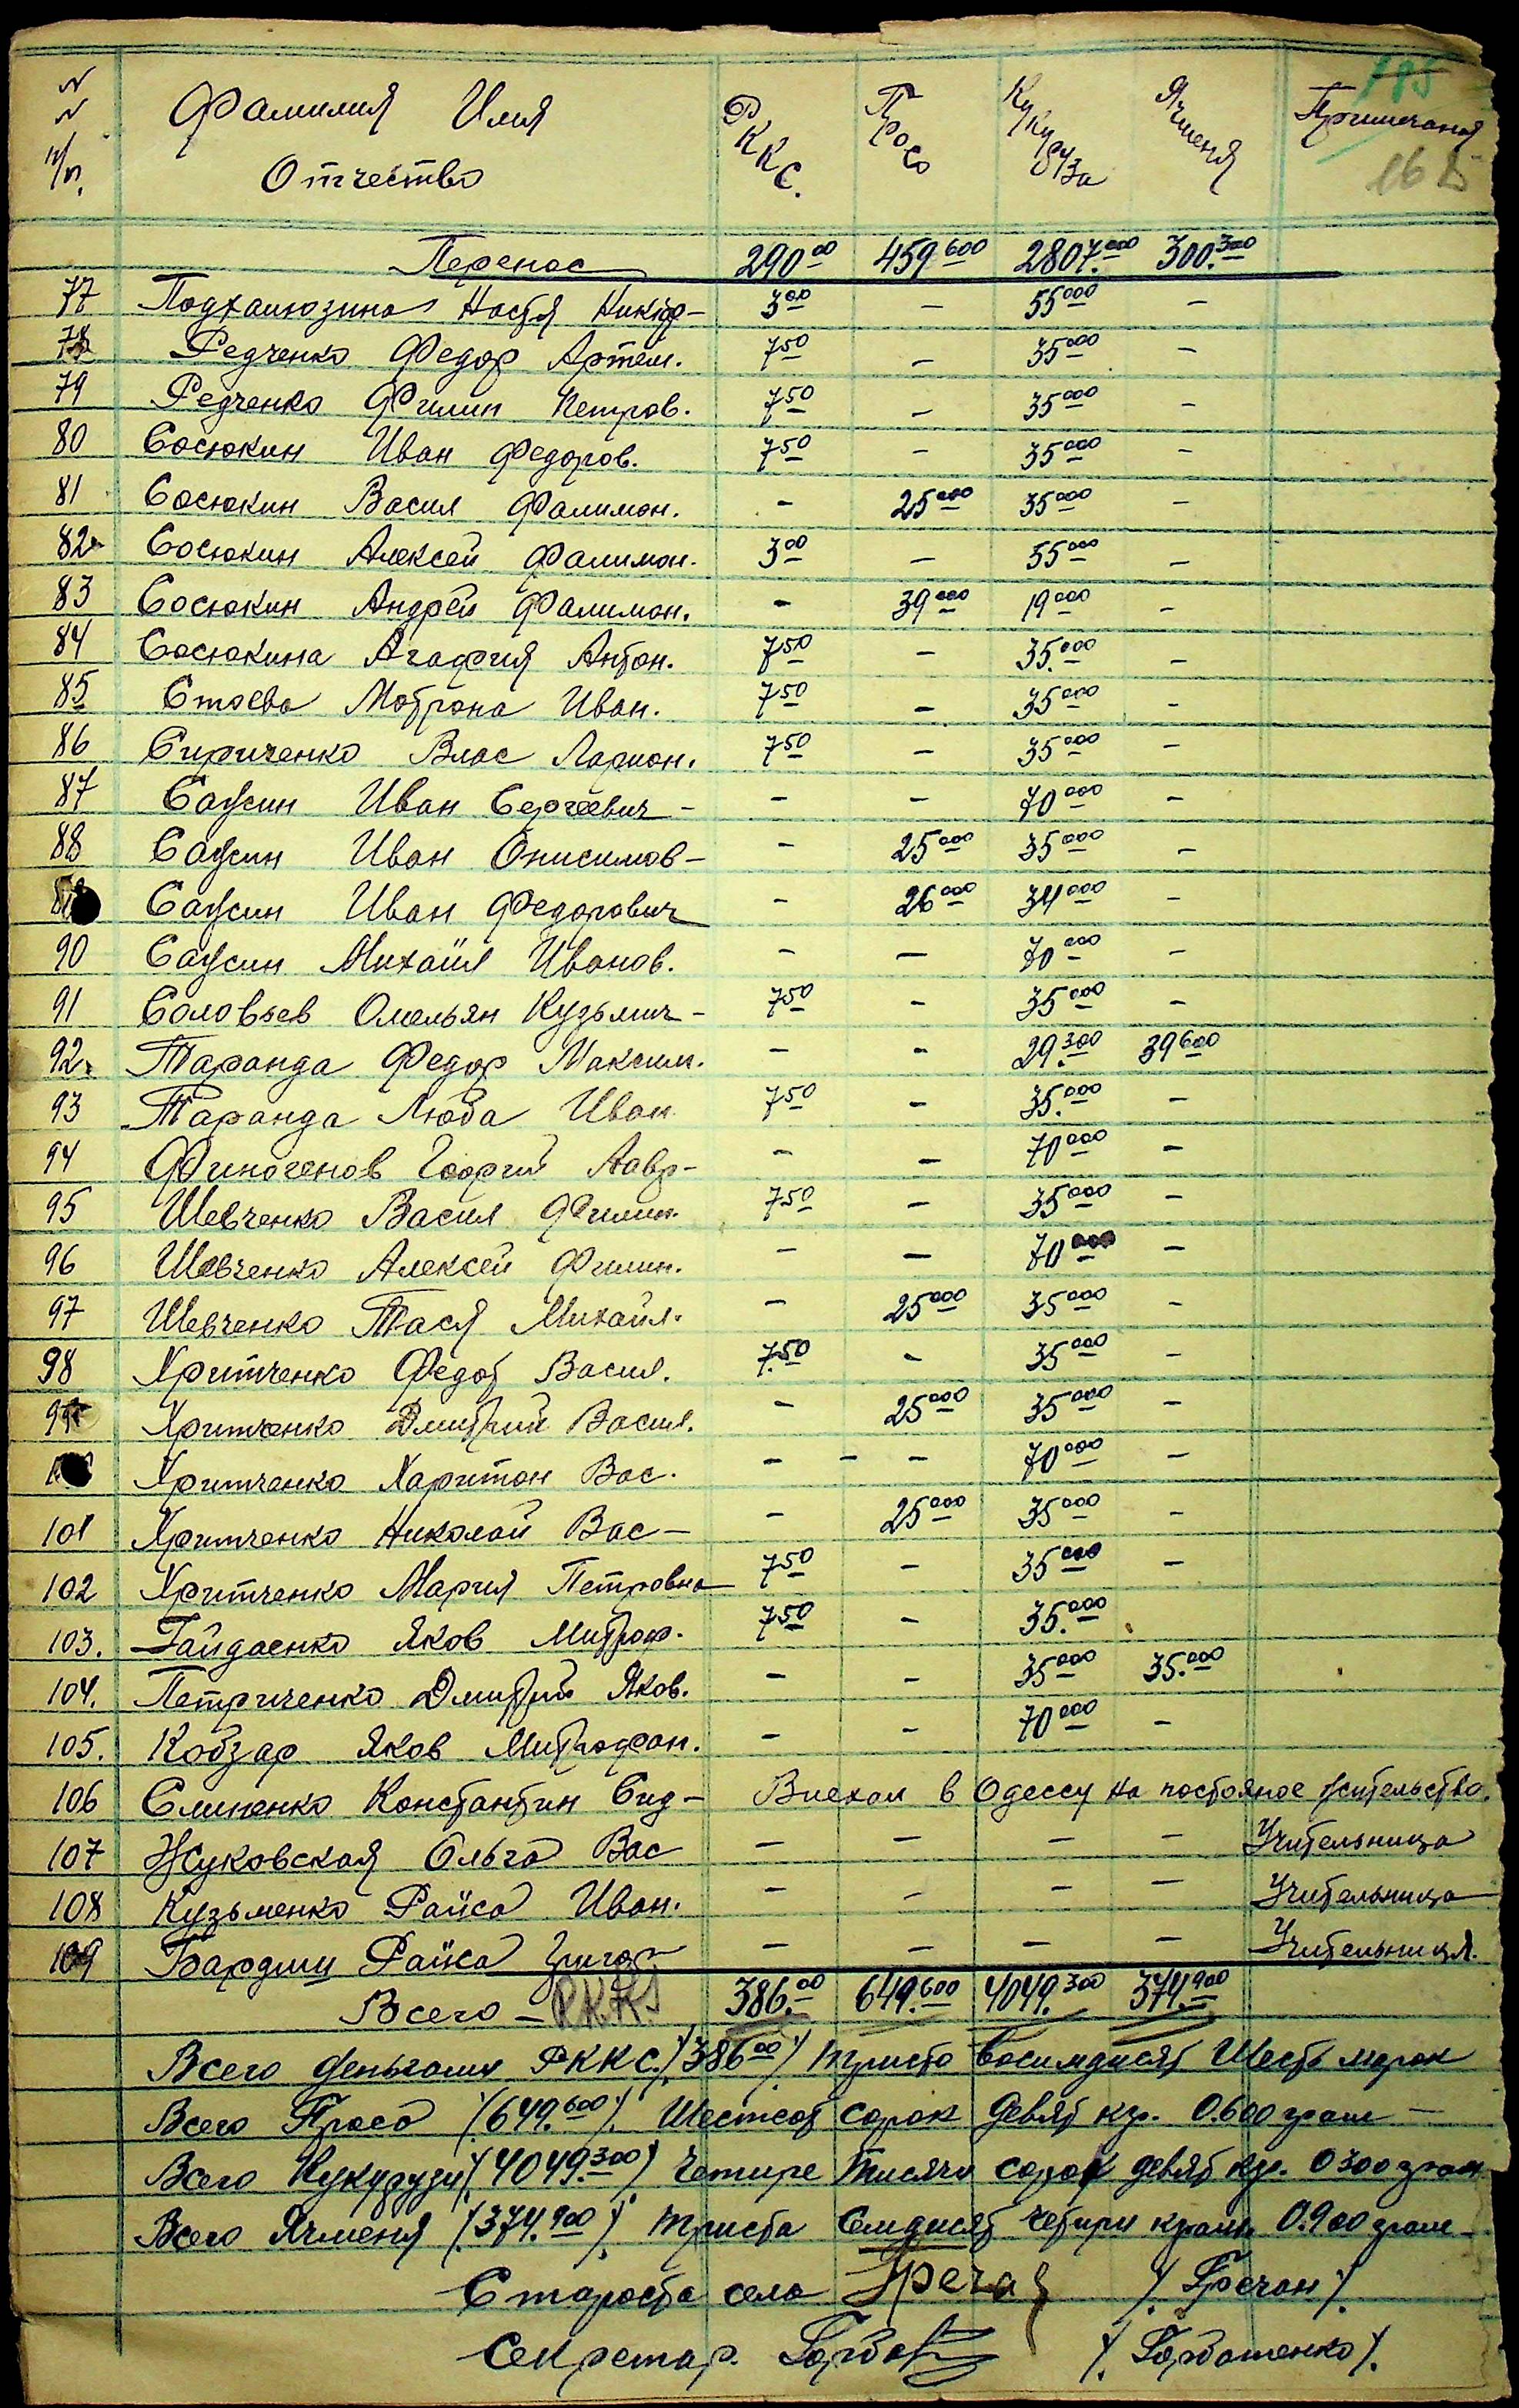 N N п/п. Фамилия Имя Отчество РККС. Просо Кукуруза Ячменя Примечания
185
165
Перенос 290 00 459 600 2807. 000 300. 300
77 Подхамюзина Настя Никиф- 3 00 - 55 000 -
78 Редченко Федор Артем. 7 50 - 35 000 -
79 Редченко Филип Петров. 7 50 - 35 000 -
80 Сосюкин Иван Федоров. 7 50 - 35 000 -
81 Сосюкин Васил Фалимон. - 25 000 35 000 -
82. Сосюкин Алексей Фалимон. 3 00 - 55 000 -
83 Сосюкин Андрей Фалимон. - 39 000 19 000 -
84 Сосюкина Агафия Антон. 7 50 - 35. 000 -
85 Стоева Мотрона Иван. 7 50 - 35 000 -
86 Сириченко Влас Ларион. 7 50 - 35 000 -
87 Саусин Иван Сергеевич - - - 70 000 -
88 Саусин Иван Онисимов- - 25 000 35 000 -
Саусин Иван Федорович - 26 000 34 000 -
90 Саусин Михайл Иванов. - - 70 000 -
91 Соловьев Омельян Кузьмич- 7 50 - 35 000 -
92. Таранда Федор Максим. - - 29. 300 39 600
93 Таранда Люба Иван 7 50 - 35. 000 -
94 Финогенов Георгий Лавр- - - 70 000 -
95 Шевченко Васил Филип. 7 50 - 35 000 -
96 Шевченко Алексей Филип. - - 70 000 -
97 Шевченко Тася Михайл. - 25 000 35 000 -
98 Хритченко Федот Васил. 7. 50 - 35 000 -
99 Хритченко Дмитрий Васил. - 25 000 35 000 -
Хритченко Харитон Вас. - - - 70 000 -
101 Хритченко Николай Вас- - 25 000 35 000 -
102 Хритченко Мария Петровна 7 50 - 35 000 -
103. Гайдаенко Яков Митроф. 7 50 - 35. 000
104. Петриченко Дмитрий Яков. - - 35 000 35. 000
105. Кобзар Яков Митрофан. - - 70 000 -
106 Слипенко Константин Сид- Виехал в Одессу на постояное жительство.
107 Жуковская Ольга Вас - - - - Учительница
108 Кузьменко Раиса Иван. - - - - Учительница
109 Бардиш Раиса Григор - - - - Учительниця.
Всего - Р.К.К.S 386. 00 649. 600 4049. 300 374. 900
Всего деньгами РККС. /386 00/ триста восимдисят Шесть марок
Всего Проса /649. 600/. Шестсот сорок девят кг. 0.600 грам -
Всего Кукурузи /4049. 300/ четире тисячи сорок девят кг. 0 300 грам
Всего Ячменя /. 374. 900/. триста семдисят четири кграм 0.900 грам-
Староста села Гречан /. Гречан /.
Секретар. Горбат /. Горбатенко /.